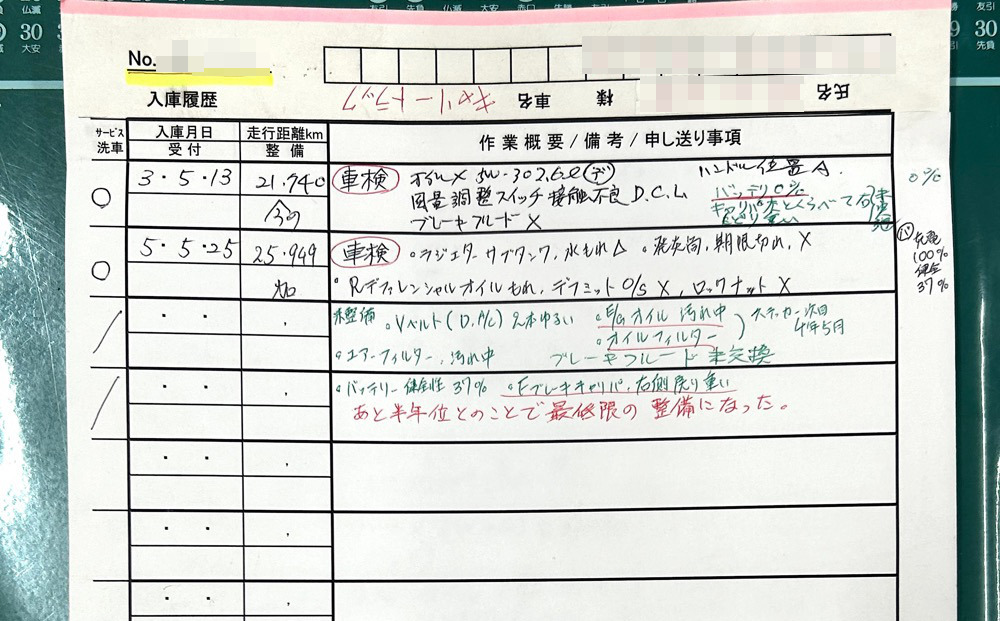 友引 先負 仏滅 大安 赤口 先勝 友引 先負
30 大安
30 先負
No.
キャリートラック
車名
様
氏名
入庫履歴
サービス 洗車
入庫月日 受付
走行距離km 整備
作業概要/備考/申し送り事項
○ 3・5・13 21.740 車検 オイルX ハンドル位置A. 0%
風量調整スイッチ接触不良 D.C.L バッテリ0%
ブレーキフルードX
○ 5・5・25 25.949 車検 ○ラジエターサブタンク,水もれ△ ○発炎筒,期限切れ,X
○Rデファレンシャルオイルもれ,デフミットO/S X,ロックナットX
充電 100% 健全 37%
未整備 ○Vベルト(D,A/C)2本ゆるい ○E/Gオイル汚れ中
○オイルフィルター
ステッカー次回
年5月
○エアーフィルター,汚れ中 ブレーキフルード未交換
○バッテリー健全性37% ○Fブレーキキャリパ,右側戻り重い
あと半年位とのことで最低限の整備になった。